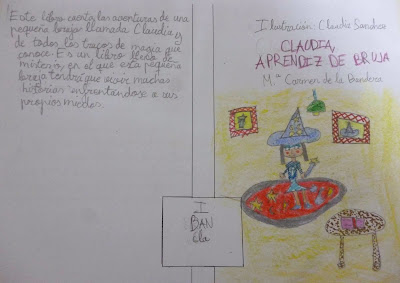 Este libro cuenta las aventuras de una
pequeña brujas llamada Claudia y
de todos los trucos de magia que
conoce. Es un libro lleno de
misterio en el que esta pequeña
bruja tendrá que vivir muchas
historias enfrentandose a sus
propios miedos.
I
BAN
cla
Ilustración: Claudia Sanchez
CLAUDIA,
APRENDIZ DE BRUJA
M.ª Carmen de la Bandera